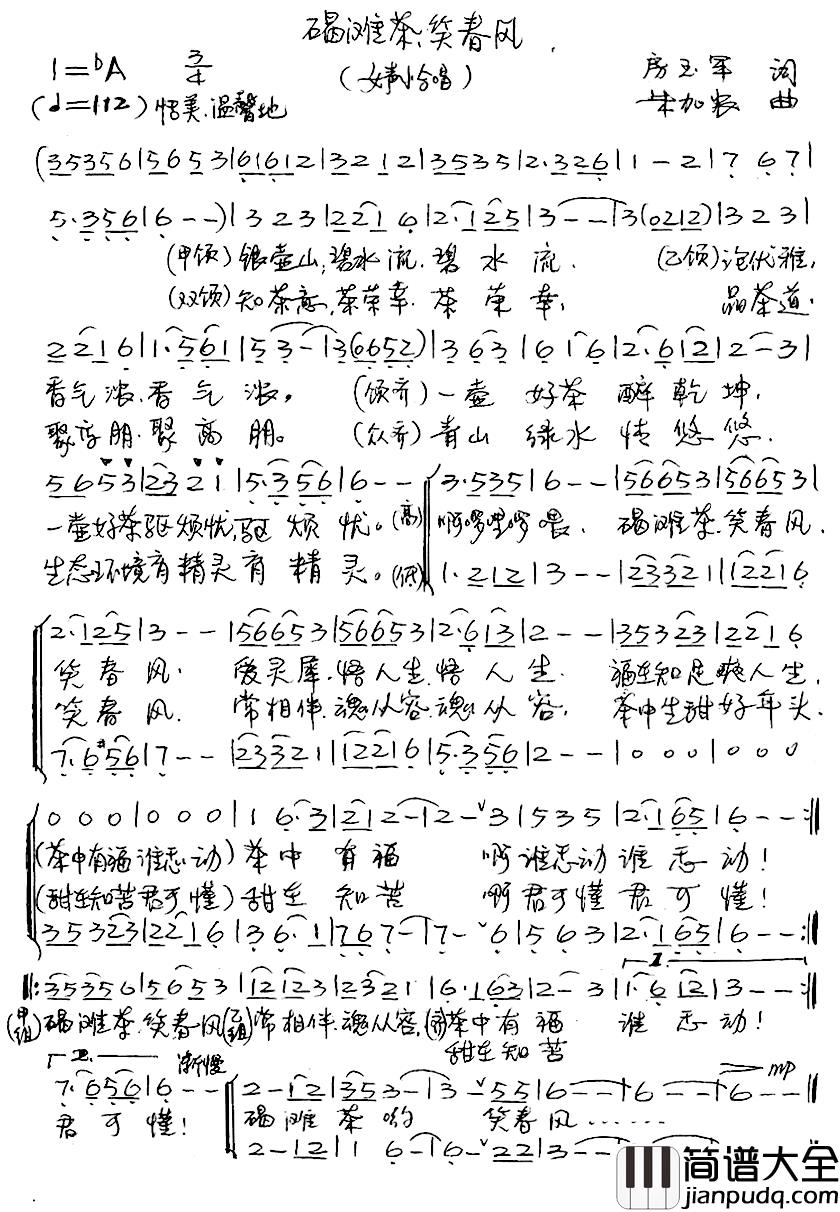 碣滩茶、笑春风
1=♭A 3/4 (女声小合唱) 房玉军 词
(♩=112) 恬美、温馨地 朱加农 曲
(35356|5653|61612|3212|3535|2·326|1-2|767|
5·356|6--)|323|2216|2·125|3--|3(0212)|323|
(甲领)银壶山,碧水流,碧水流. (乙领)泡优雅,
(双领)知茶意,茶荣幸,茶荣幸, 品茶道,
2216|1·561|53-|3(0652)|363|616|2·612|2-3|
香气浓,香气浓。(领齐)一壶好茶醉乾坤,
聚高朋,聚高朋。(众齐)青山绿水情悠悠.
5653|2321|5·356|6--|3·535|6--|56653|56653|
一壶好茶驱烦忧,驱烦忧。(高)啊啰哩啰喂. 碣滩茶,笑春风.
生态环境育精灵育精灵。(低)1·212|3--|23321|12216
2·125|3--|56653|56653|2·613|2--|35323|2216
笑春风. 爱灵犀,悟人生,悟人生. 福在知足爽人生,
笑春风. 常相伴,魂从容,魂从容, 茶中生甜好年头.
7·6#56|7--|23321|12216|5·356|2--|000|000
000|000|16·3|212-|2-3|535|2·165|6--:‖
(茶中有福谁悉动)茶中有福 啊谁悉动谁悉动!
(甜在知苦君可懂)甜在知苦 啊君可懂君可懂!
35323|2216|36·1|767-|7-6|563|2·165|6--:‖
‖:35356|5653|12123|2321|6·163|2-3|1·612|3--:‖
(甲组)碣滩茶,笑春风(乙组)常相伴,魂从容,(齐)茶中有福 谁悉动!
甜在知苦
渐慢 mp
7·656|6--|2-12|353-|3-55|6--|6--|6--‖
君可懂! 碣滩茶哟 笑春风……
2-12|16-|6-22|3--|3--|3--‖
简谱大全
jianpudq.com